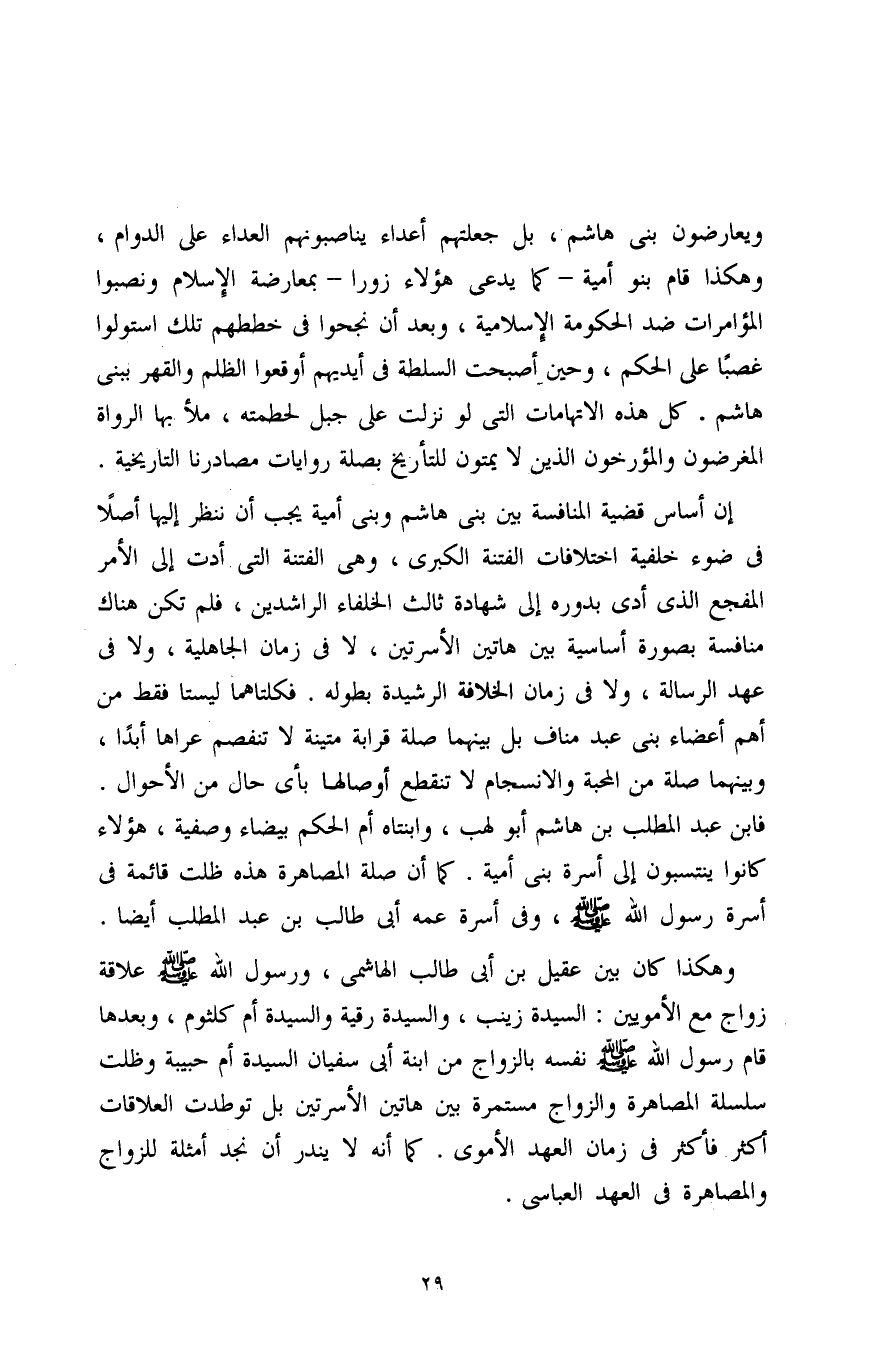 ويعارضون بنى هاشم ، بل جعلتهم أعداء يناصبونهم العداء على الدوام ،
وهكذا قام بنو أمية – كما يدعى هؤلاء زورا – بمعارضة الإسلام ونصبوا
المؤامرات ضد الحكومة الإسلامية ، وبعد أن نجحوا فى خططهم تلك استولوا
غصبًا على الحكم ، وحين أصبحت السلطة فى أيديهم أوقعوا الظلم والقهر ببنى
هاشم . كل هذه الاتهامات التى لو نزلت على جبل لحطمته ، ملأ بها الرواة
المغرضون والمؤرخون الذين لا يمتون للتأريخ بصلة روايات مصادرنا التاريخية .
إن أساس قضية المنافسة بين بنى هاشم وبنى أمية يجب أن ننظر إليها أصلًا
فى ضوء خلفية اختلافات الفتنة الكبرى ، وهى الفتنة التى أدت إلى الأمر
المفجع الذى أدى بدوره إلى شهادة ثالث الخلفاء الراشدين ، فلم تكن هناك
منافسة بصورة أساسية بين هاتين الأسرتين ، لا فى زمان الجاهلية ، ولا فى
عهد الرسالة ، ولا فى زمان الخلافة الرشيدة بطوله . فكلتاهما ليستا فقط من
أهم أعضاء بنى عبد مناف بل بينهما صلة قرابة متينة لا تنفصم عراها أبدًا ،
وبينهما صلة من المحبة والانسجام لا تنقطع أوصالها بأى حال من الأحوال .
فابن عبد المطلب بن هاشم أبو لهب ، وابنتاه أم الحكم بيضاء وصفية ، هؤلاء
كانوا ينتسبون إلى أسرة بنى أمية . كما أن صلة المصاهرة هذه ظلت قائمة فى
أسرة رسول الله ﷺ ، وفى أسرة عمه أبى طالب بن عبد المطلب أيضا .
وهكذا كان بين عقيل بن أبى طالب الهاشمى ، ورسول الله ﷺ علاقة
زواج مع الأمويين : السيدة زينب ، والسيدة رقية والسيدة أم كلثوم ، وبعدها
قام رسول الله ﷺ نفسه بالزواج من ابنة أبى سفيان السيدة أم حبيبة وظلت
سلسلة المصاهرة والزواج مستمرة بين هاتين الأسرتين بل توطدت العلاقات
أكثر فأكثر فى زمان العهد الأموى . كما أنه لا يندر أن نجد أمثلة للزواج
والمصاهرة فى العهد العباسى .
٢٩